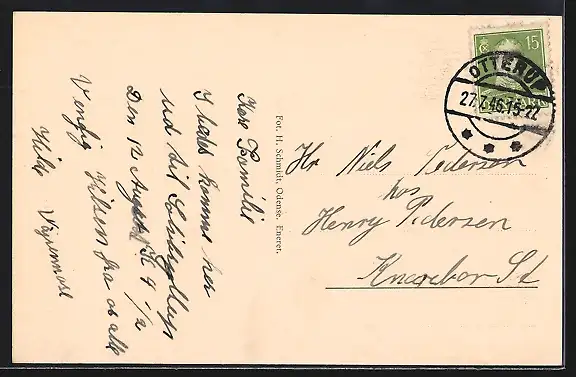 Kære Familie
I bedes komme her
ud til
Den 12 August Kl 4 1/2
Venlig Hilsen fra os alle
15
OTTERUP
27.7.46.15-22
DANMARK
Fot. H. Schmidt, Odense. Eneret.
Hr Niels Pedersen
hos
Henry Pedersen
Knarebor St